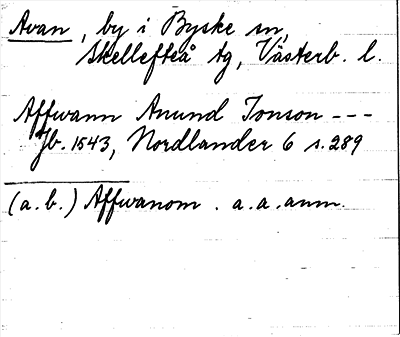 Avan, by i Byske sn,
Skellefteå tg, Västerb. l.
Affwann Anund Jonson ---
Jb. 1543, Nordlander 6 s. 289
(a.b.) Affwanom. a.a. anm.